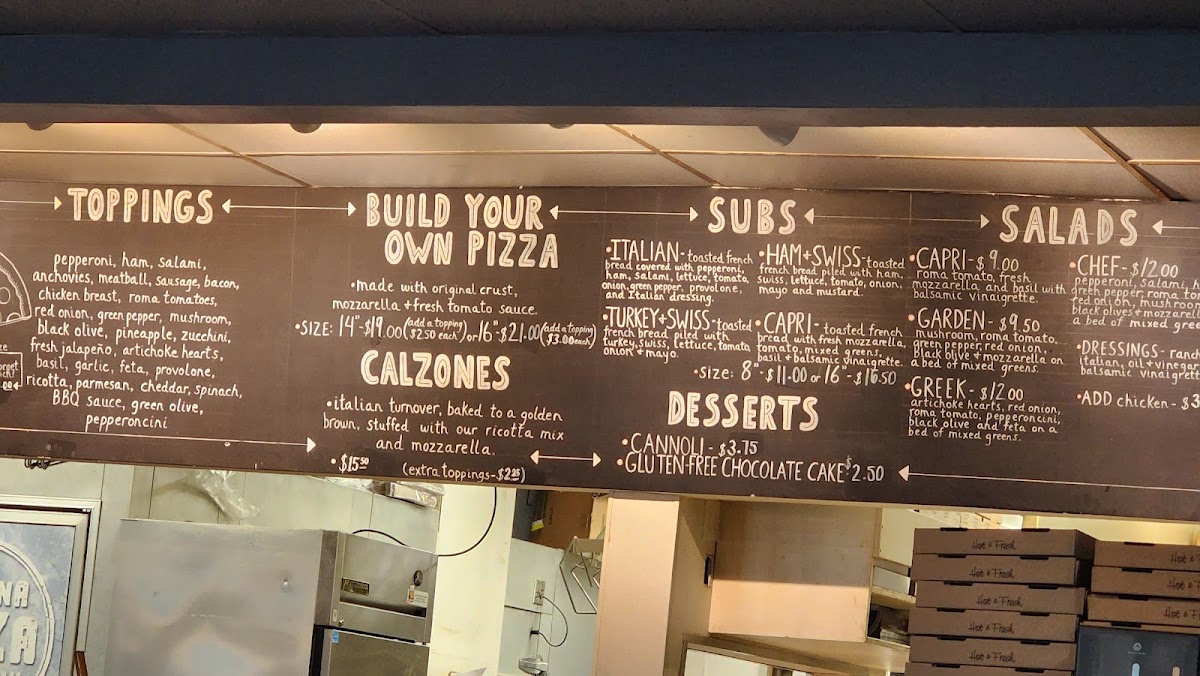 TOPPINGS
pepperoni, ham, salami,
anchovies, meatball, sausage, bacon,
chicken breast, roma tomatoes,
red onion, green pepper, mushroom,
black olive, pineapple, zucchini,
fresh jalapeño, artichoke hearts,
basil, garlic, feta, provolone,
ricotta, parmesan, cheddar, spinach,
BBQ sauce, green olive,
pepperoncini
BUILD YOUR
OWN PIZZA
•made with original crust,
mozzarella + fresh tomato sauce.
•SIZE: 14"-$19.00 (add a topping $2.50 each) or 16"-$21.00 (add a topping $3.00 each)
CALZONES
•italian turnover, baked to a golden
brown, stuffed with our ricotta mix
and mozzarella.
•$15.50 (extra toppings-$2.25)
SUBS
•ITALIAN-toasted french
bread covered with pepperoni,
ham, salami, lettuce, tomato,
onion, green pepper, provolone,
and Italian dressing.
•TURKEY+SWISS-toasted
french bread piled with
turkey, swiss, lettuce, tomato,
onion + mayo.
•HAM+SWISS-toasted
french bread piled with ham,
swiss, lettuce, tomato, onion,
mayo and mustard.
•CAPRI- toasted french
bread with fresh mozzarella,
tomato, mixed greens,
basil + balsamic vinaigrette.
•SIZE: 8"-$11.00 or 16"-$16.50
DESSERTS
•CANNOLI-$3.75
•GLUTEN-FREE CHOCOLATE CAKE $2.50
SALADS
•CAPRI-$9.00
roma tomato, fresh
mozzarella and basil with
balsamic vinaigrette.
•GARDEN-$9.50
mushroom, roma tomato,
green pepper, red onion,
black olive + mozzarella on
a bed of mixed greens.
•GREEK-$12.00
artichoke hearts, red onion,
roma tomato, pepperoncini,
black olive and feta on a
bed of mixed greens.
•CHEF-$12.00
pepperoni, salami,
green pepper, roma
red onion, mushroom
black olives + mozzarel
a bed of mixed gree
•DRESSINGS-ran
italian, oil + vinegar
balsamic vinaigrett
•ADD chicken-$3
NA
ZA
Hot & Fresh
Hot & Fresh
Hot & Fresh
Hot & Fresh
Hot & Fresh